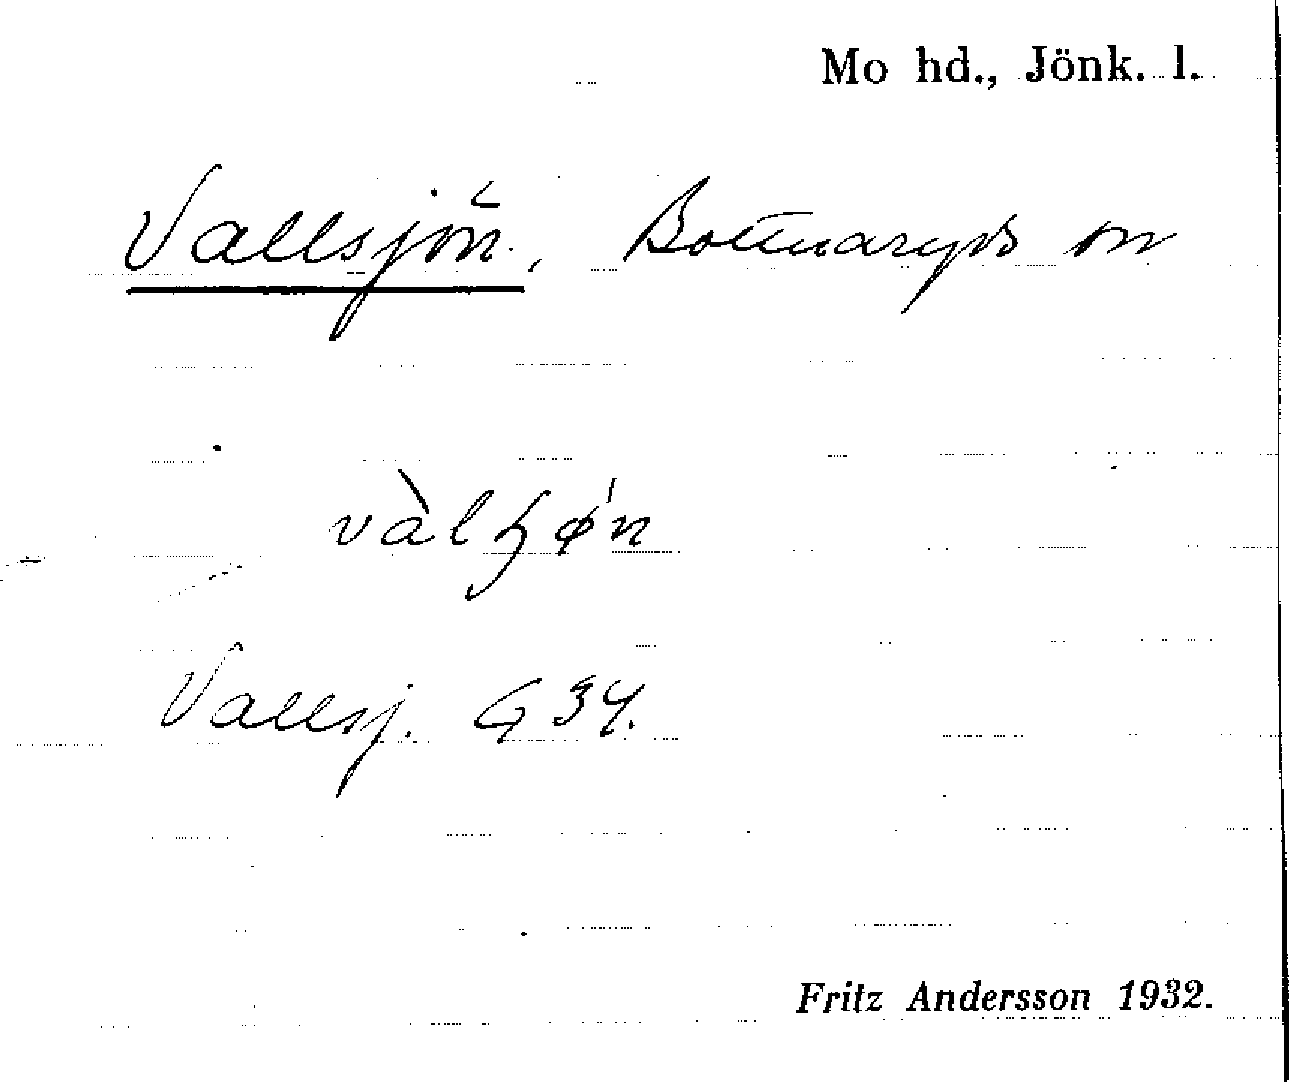 Mo hd., Jönk. l.
Vallsjön, Bottnaryds sn
vàlɧø'n
Vallsj. G 34.
Fritz Andersson 1932.